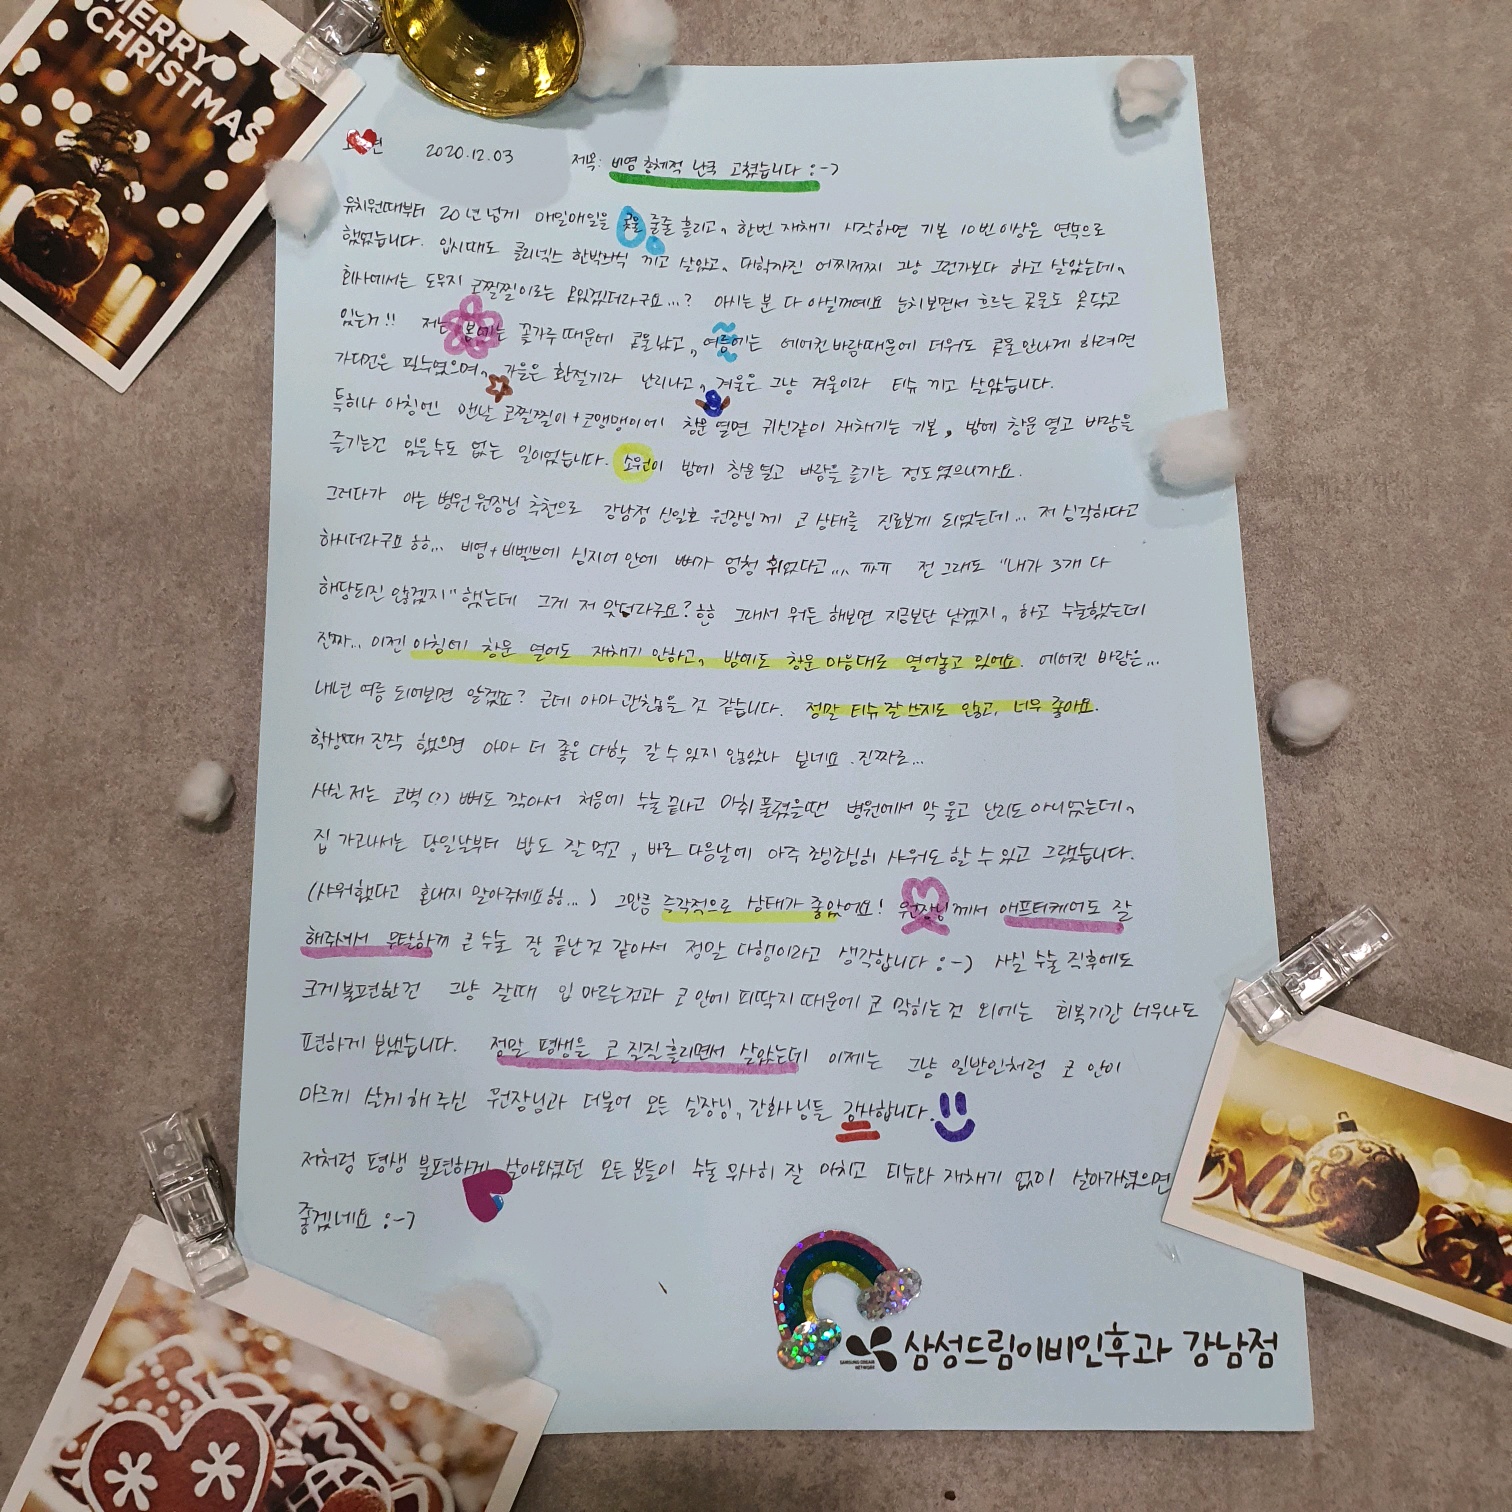 MERRY
CHRISTMAS
2020.12.03 제목: 비염 총체적 난국 고쳤습니다 :-)
유치원때부터 20년 넘게 매일매일을 콧물 줄줄 흘리고, 한번 재채기 시작하면 기본 10번 이상은 연속으로
했었습니다. 입시때도 클리넥스 한박스씩 끼고 살았고, 대학까진 어찌저찌 그냥 그런가보다 하고 살았는데,
회사에서는 도무지 코찔찔이로는 못있겠더라구요...? 아시는 분 다 아실꺼예요 눈치보면서 흐르는 콧물도 못닦고
있는거!! 저는 봄에는 꽃가루 때문에 콧물났고, 여름에는 에어컨 바람때문에 더워도 콧물 안나게 하려면
가디건은 필수였으며, 가을은 환절기라 난리나고, 겨울은 그냥 겨울이라 티슈 끼고 살았습니다.
특히나 아침엔 맨날 코찔찔이+코맹맹이에 창문 열면 귀신같이 재채기는 기본, 밤에 창문 열고 바람을
즐기는건 있을수도 없는 일이었습니다. 소원이 밤에 창문 열고 바람을 즐기는 정도였으니까요.
그러다가 아는 병원 원장님 추천으로 강남점 신일호 원장님께 코 상태를 진료보게 되었는데... 저 심각하다고
하시더라구요 하하... 비염+비밸브에 심지어 안에 뼈가 엄청 휘었다고... ㅠㅠ 전 그래도 "내가 3개 다
해당되진 않겠지" 했는데 그게 저 맞더라구요? 하하 그래서 뭐든 해보면 지금보단 낫겠지, 하고 수술했는데
진짜... 이젠 아침에 창문 열어도 재채기 안하고, 밤에도 창문 마음대로 열어놓고 있어요. 에어컨 바람은...
내년 여름 되어보면 알겠죠? 근데 아마 괜찮을 것 같습니다. 정말 티슈 잘 쓰지도 않고, 너무 좋아요.
학생때 진작 했으면 아마 더 좋은 대학 갈 수 있지 않았나 싶네요. 진짜로...
사실 저는 코벽(?) 뼈도 깎아서 처음에 수술 끝나고 마취 풀렸을땐 병원에서 막 울고 난리도 아니었는데,
집 가고나서는 당일날부터 밥도 잘 먹고, 바로 다음날에 아주 조심조심히 샤워도 할 수 있고 그랬습니다.
(샤워했다고 혼내지 말아주세요 하하...) 그만큼 즉각적으로 상태가 좋았어요! 원장님께서 애프터케어도 잘
해주셔서 무탈하게 큰 수술 잘 끝난것 같아서 정말 다행이라고 생각합니다 :-) 사실 수술 직후에도
크게 불편한건 그냥 잘때 입 마르는것과 코 안에 피딱지 때문에 코 막히는 것 외에는 회복기간 너무나도
편하게 보냈습니다. 정말 평생을 코 질질 흘리면서 살았는데 이제는 그냥 일반인처럼 코 안이
마르게 살게 해 주신 원장님과 더불어 모든 실장님, 간호사님들 감사합니다.
저처럼 평생 불편하게 살아와셨던 모든 분들이 수술 무사히 잘 마치고 티슈와 재채기 없이 살아가셨으면
좋겠네요 :-)
SAMSUNG DREAM
NETWORK
삼성드림이비인후과 강남점